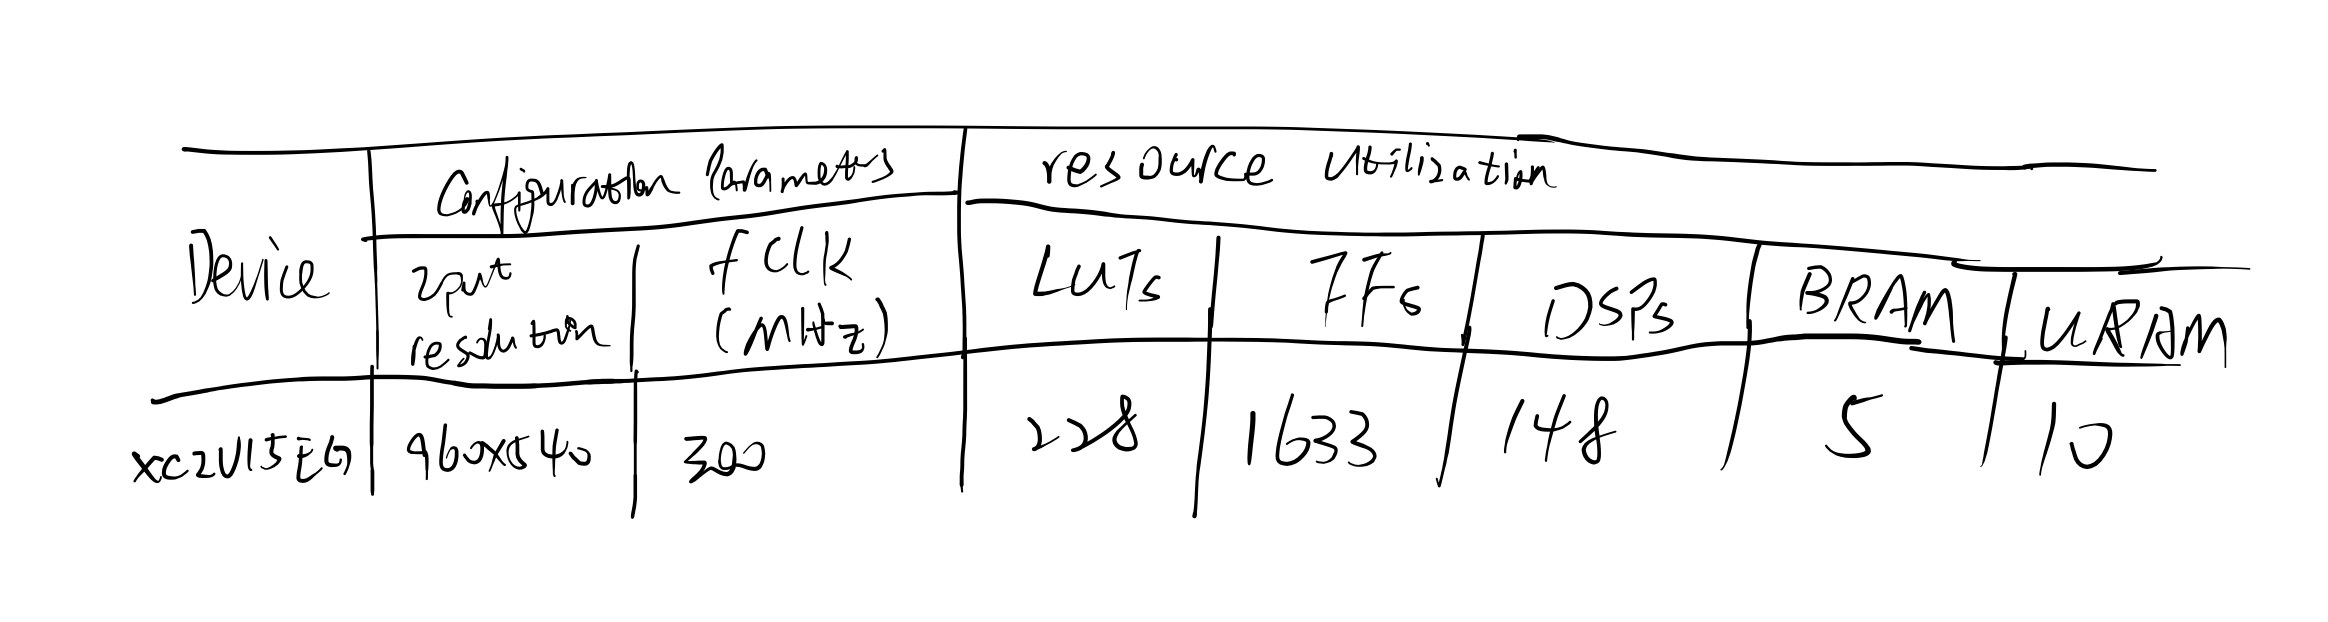 Configuration Parameters resource Utilization
Device Input resolution fCLK (MHz) LUTs FFs DSPs BRAM URAM
XCZU15EG 960x540 300 228 1633 148 5 10